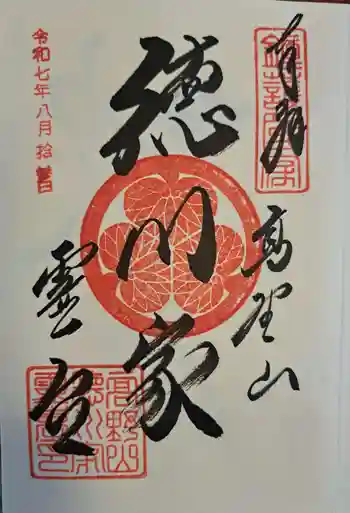 奉拝
高野山
徳川家
霊台
令和七年八月拾